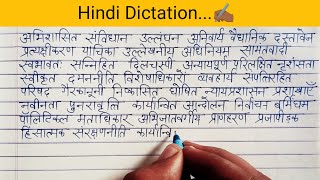 Hindi Dictation...✍🏽
अभिशासित संविधान उल्लंघन अनिवार्य वैधानिक दस्तावेज
प्रत्यक्षीकरण याचिका उल्लेखनीय अधिनियम सामंतवादी
स्वभावतः सन्निहित दिलचस्पी अन्यायपूर्ण परिलक्षित नृशंसता
स्वीकृत दमननीति विशेषाधिकारों व्यवहार्य सम्मिलित
परिषद गैरकानूनी निष्कासित घोषित न्यायप्रशासन प्रशाखाएँ
नवीनता पुनरावृत्ति कार्यान्वित आन्दोलन निर्वाचन बर्मिंघम
पॉलिटिकल मताधिकार अभिजातवर्गीय प्राणहरण प्रजापीड़क
हिंसात्मक संरक्षणनीति कार्यान्वि